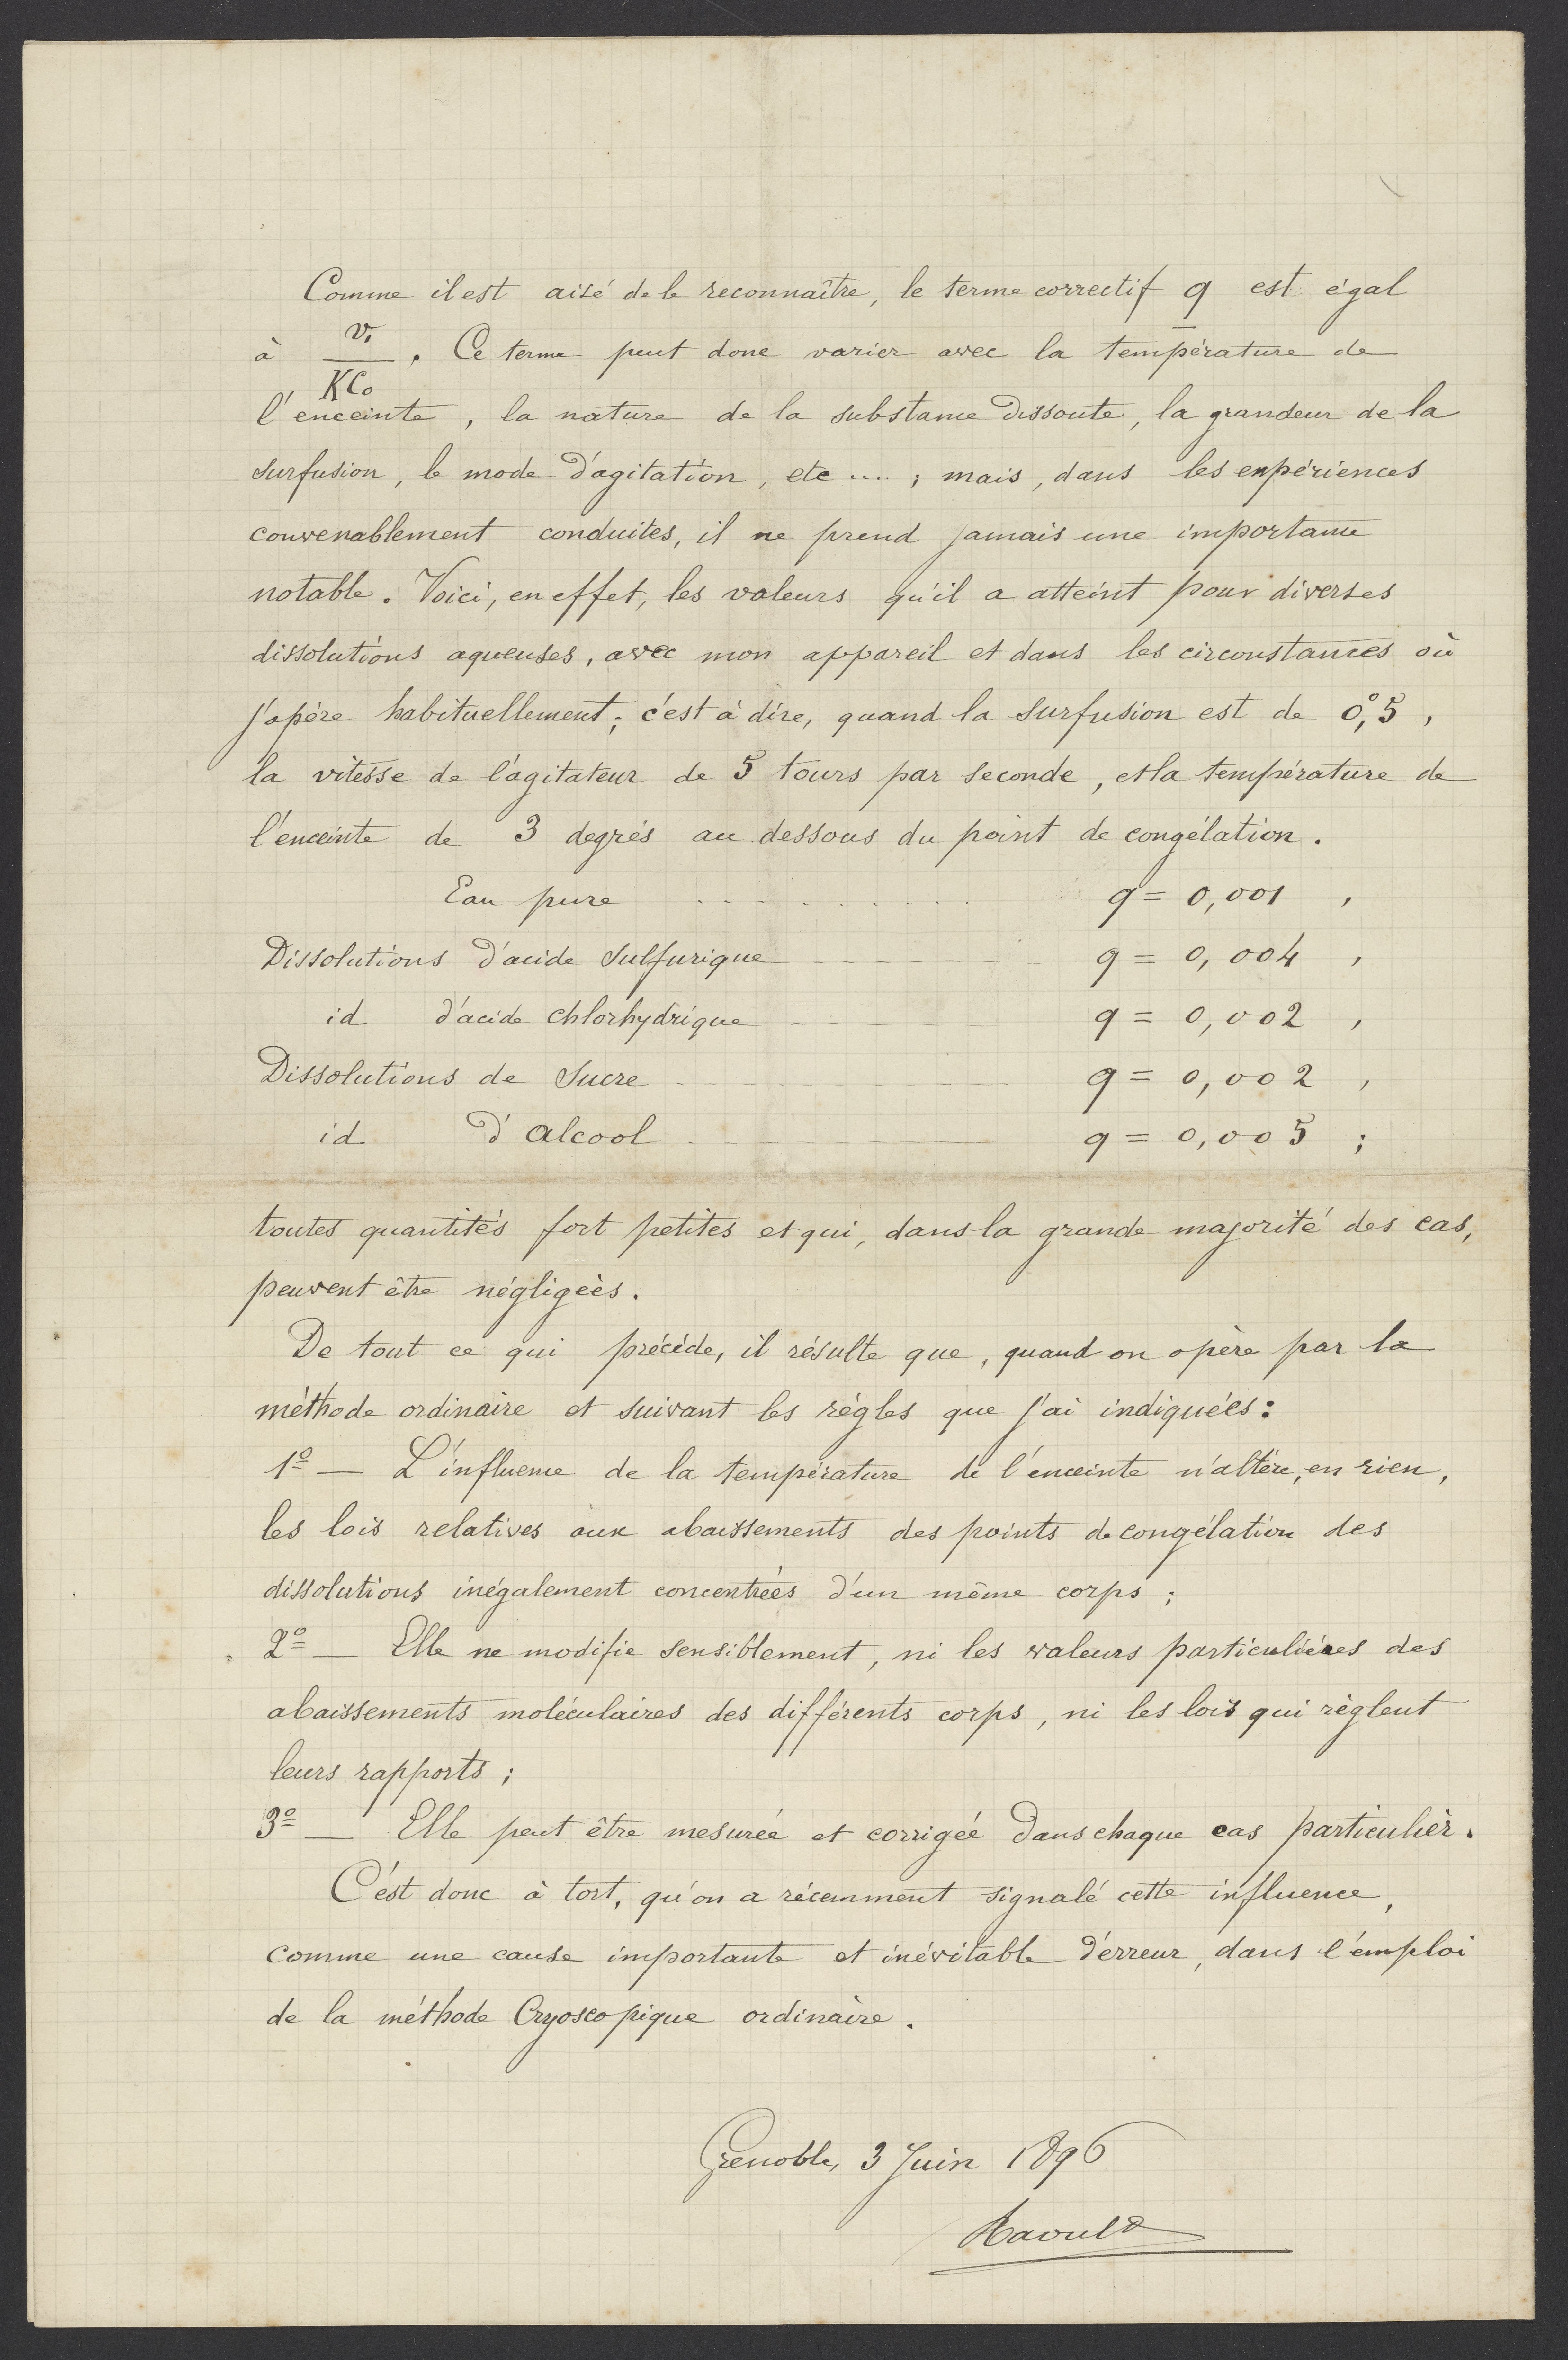 Comme il est aisé de le reconnaître, le terme correctif q est égal
à v₁/KC₀. Ce terme peut donc varier avec la température de
l'enceinte, la nature de la substance dissoute, la grandeur de la
surfusion, le mode d'agitation, etc ....; mais, dans les expériences
convenablement conduites, il ne prend jamais une importance
notable. Voici, en effet, les valeurs qu'il a atteint pour diverses
dissolutions aqueuses, avec mon appareil et dans les circonstances où
j'opère habituellement; c'est à dire, quand la surfusion est de 0°,5,
la vitesse de l'agitateur de 5 tours par seconde, et la température de
l'enceinte de 3 degrés au dessous du point de congélation.
Eau pure . . . . . . . . . . q = 0,001 ,
Dissolutions d'acide sulfurique — — — — — q = 0,004 ,
id d'acide chlorhydrique — — — — — q = 0,002 ,
Dissolutions de sucre — — — — — q = 0,002 ,
id d'alcool — — — — — q = 0,005 ;
toutes quantités fort petites et qui, dans la grande majorité des cas,
peuvent être négligées.
De tout ce qui précède, il résulte que, quand on opère par la
méthode ordinaire et suivant les règles que j'ai indiquées:
1º — L'influence de la température de l'enceinte n'altère, en rien,
les lois relatives aux abaissements des points de congélation des
dissolutions inégalement concentrées d'un même corps;
2º — Elle ne modifie sensiblement, ni les valeurs particulières des
abaissements moléculaires des différents corps, ni les lois qui règlent
leurs rapports;
3º — Elle peut être mesurée et corrigée dans chaque cas particulier.
C'est donc à tort, qu'on a récemment signalé cette influence,
comme une cause importante et inévitable d'erreur, dans l'emploi
de la méthode Cryoscopique ordinaire.
Grenoble, 3 Juin 1896
Raoult